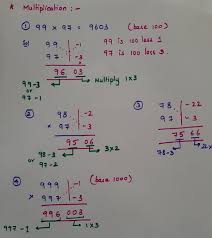 * Multiplication :-
① 99 × 97 = 9603 (base 100)
99 -1
97 -3
96 03
99 is 100 less 1
97 is 100 less 3.
99-3
or
97-1
Multiply 1×3
② 98 -2
× 97 -3
95 06
98-3
or
97-2
3×2
③ 78 -22
× 97 -3
75 66
78-3
④ 999 -1 (base 1000)
× 997 -3
996 003
997-1
1×3